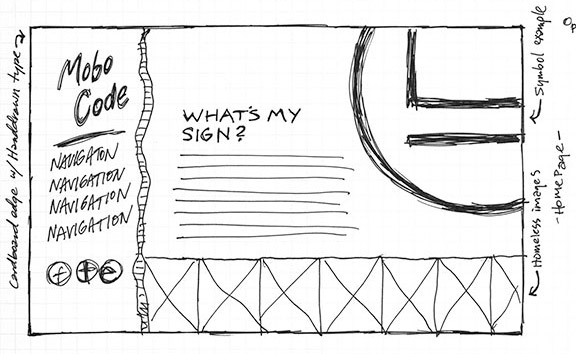 Cardboard edge w/ Handdrawn type
Mobo
Code
NAVIGATON
NAVIGATION
NAVIGATION
NAVIGATION
f
t
e
WHAT'S MY
SIGN?
Symbol example
Homeless images
- HomePage -
Op